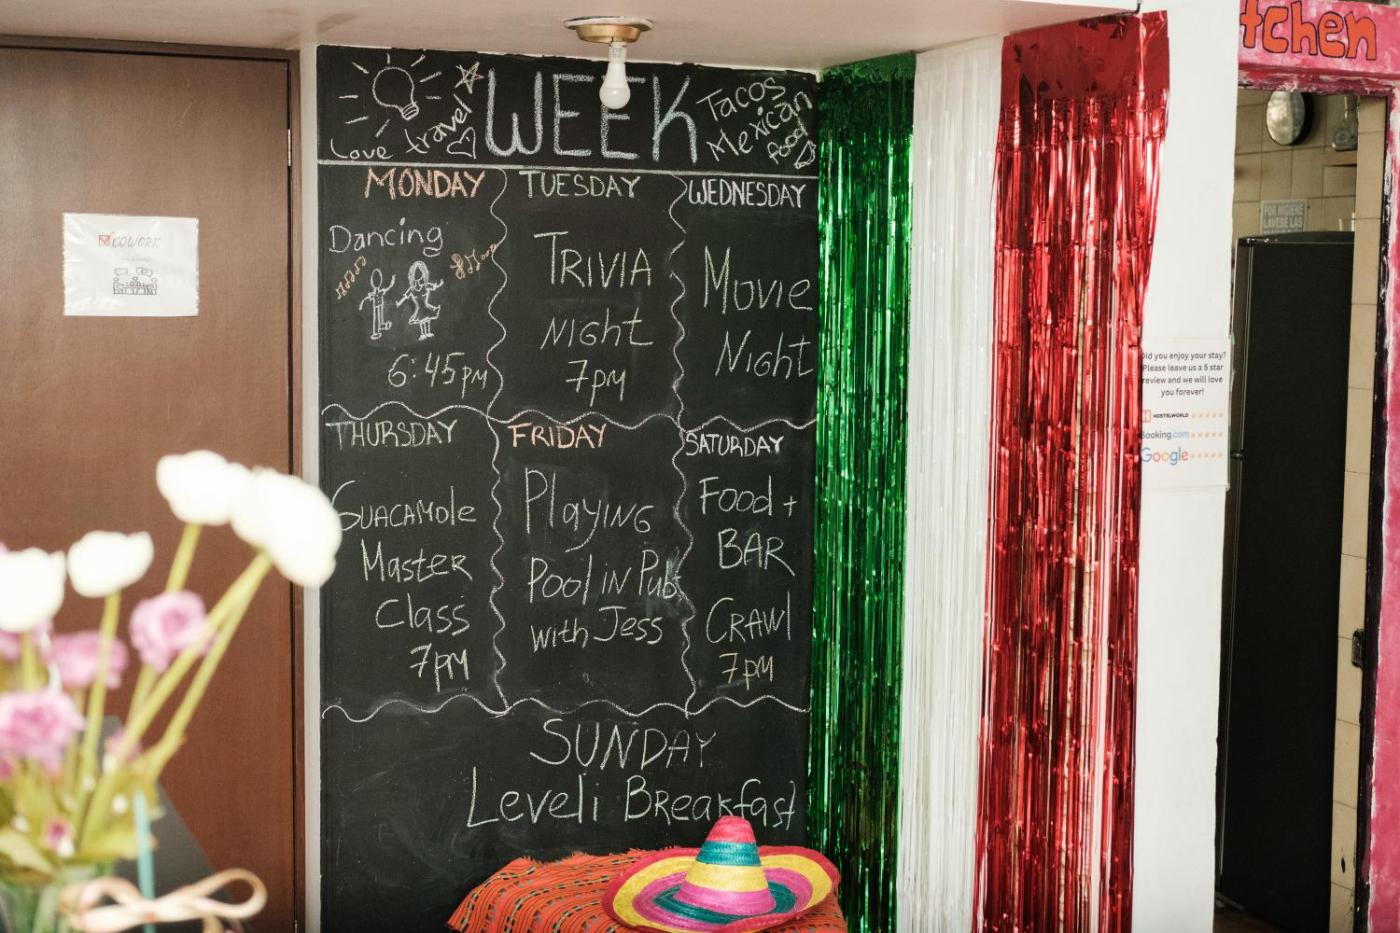 WEEK
Love travel
Tacos
Mexican
Food
MONDAY
Dancing
6:45pm
TUESDAY
TRIVIA
NIGHT
7pm
WEDNESDAY
Movie
Night
THURSDAY
GUACAMOLE
Master
Class
7pm
FRIDAY
Playing
Pool in Pub
with Jess
SATURDAY
Food +
BAR
CRAWL
7pm
SUNDAY
Leveli Breakfast
COWORK
tchen
POR HIGIENE
LAVESE LAS
Did you enjoy your stay?
Please leave us a 5 star
review and we will love
you forever!
HOSTELWORLD
Booking.com
Google